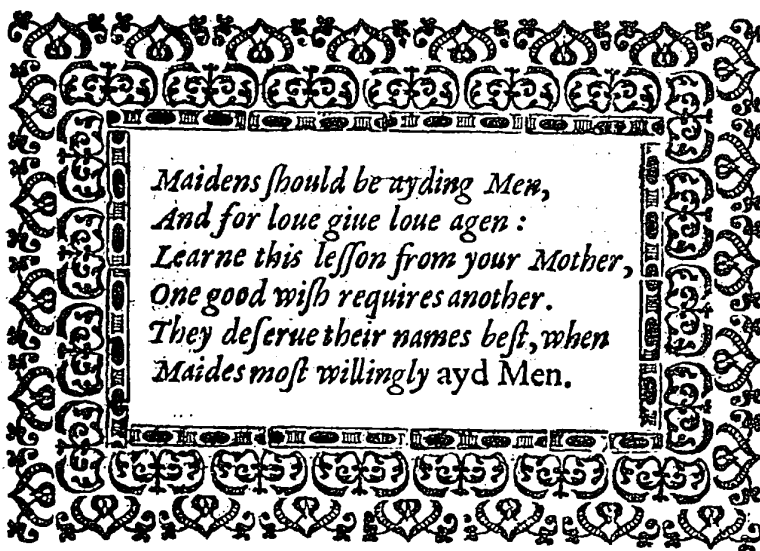 Maidens ſhould be ayding Men,
And for loue giue loue agen :
Learne this leſſon from your Mother,
One good wiſh requires another.
They deſerue their names beſt, when
Maides moſt willingly ayd Men.